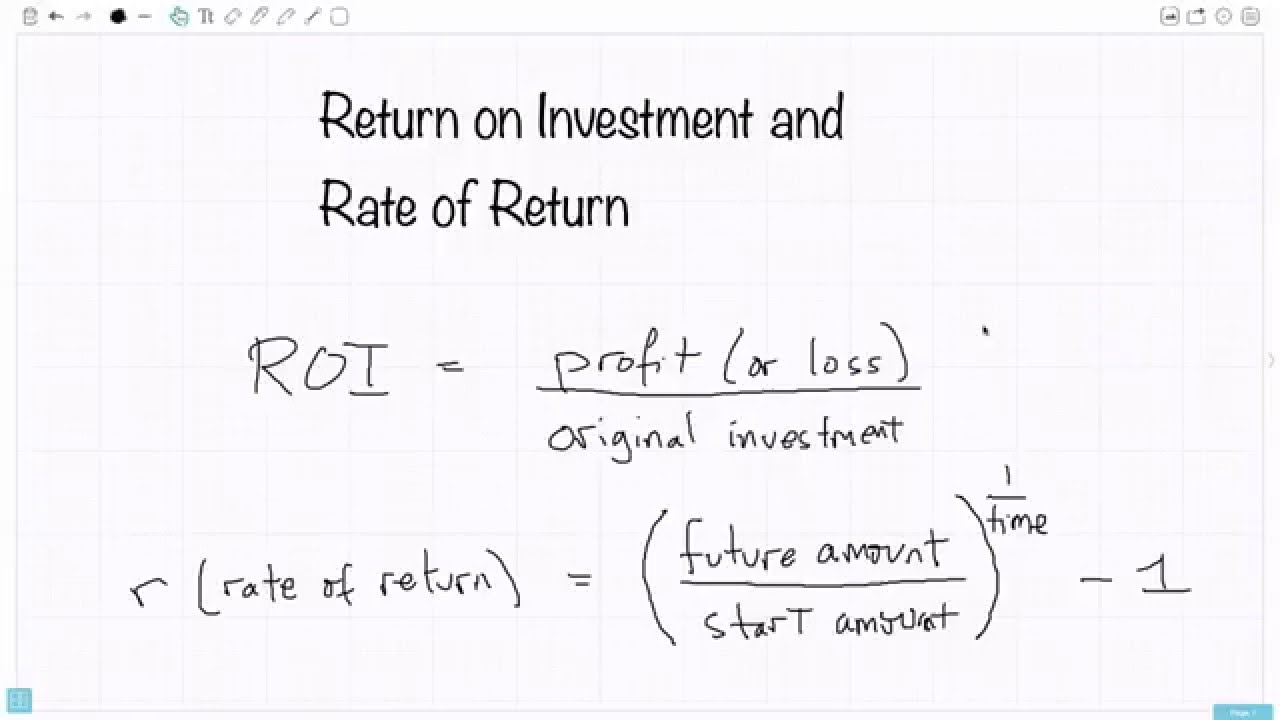 Tt
Return on Investment and
Rate of Return
ROI = profit (or loss)
original investment
r (rate of return) = (future amount / start amount)^(1/time) - 1
Page 1